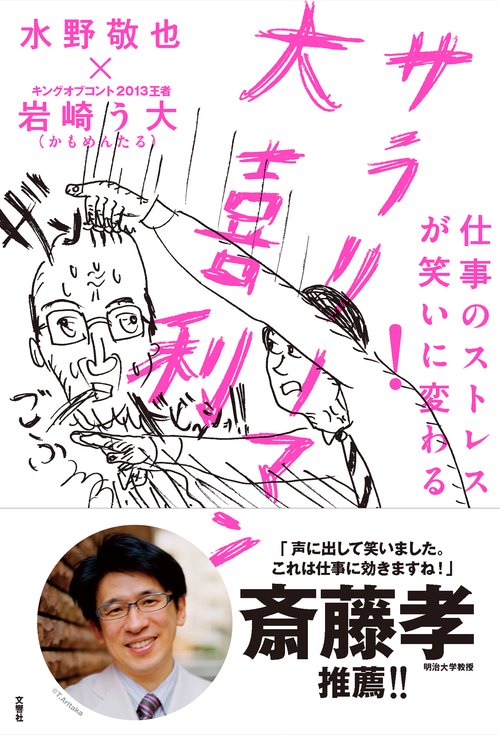 水野敬也
×
キングオブコント2013王者
岩崎う大
(かもめんたる)
サラリーマン
大喜利
!
仕事のストレス
が笑いに変わる
ザンッ
ごふっ
ドビッシッ!!
「声に出して笑いました。
これは仕事に効きますね!」
斎藤孝
明治大学教授
推薦!!
©T.Aritaka
文響社